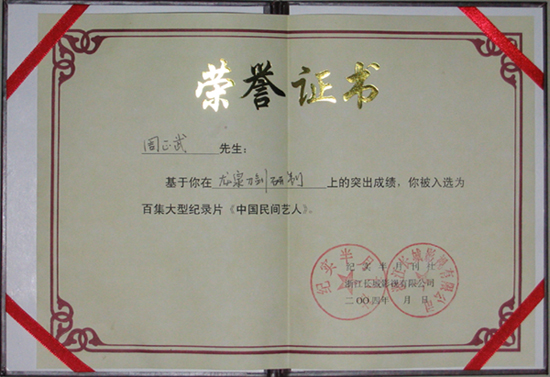 荣誉证书
周正武 先生：
基于你在 龙泉刀剑研制 上的突出成绩，你被入选为
百集大型纪录片《中国民间艺人》。
纪实半月刊社
浙江长城影视有限公司
二〇〇四年 月 日